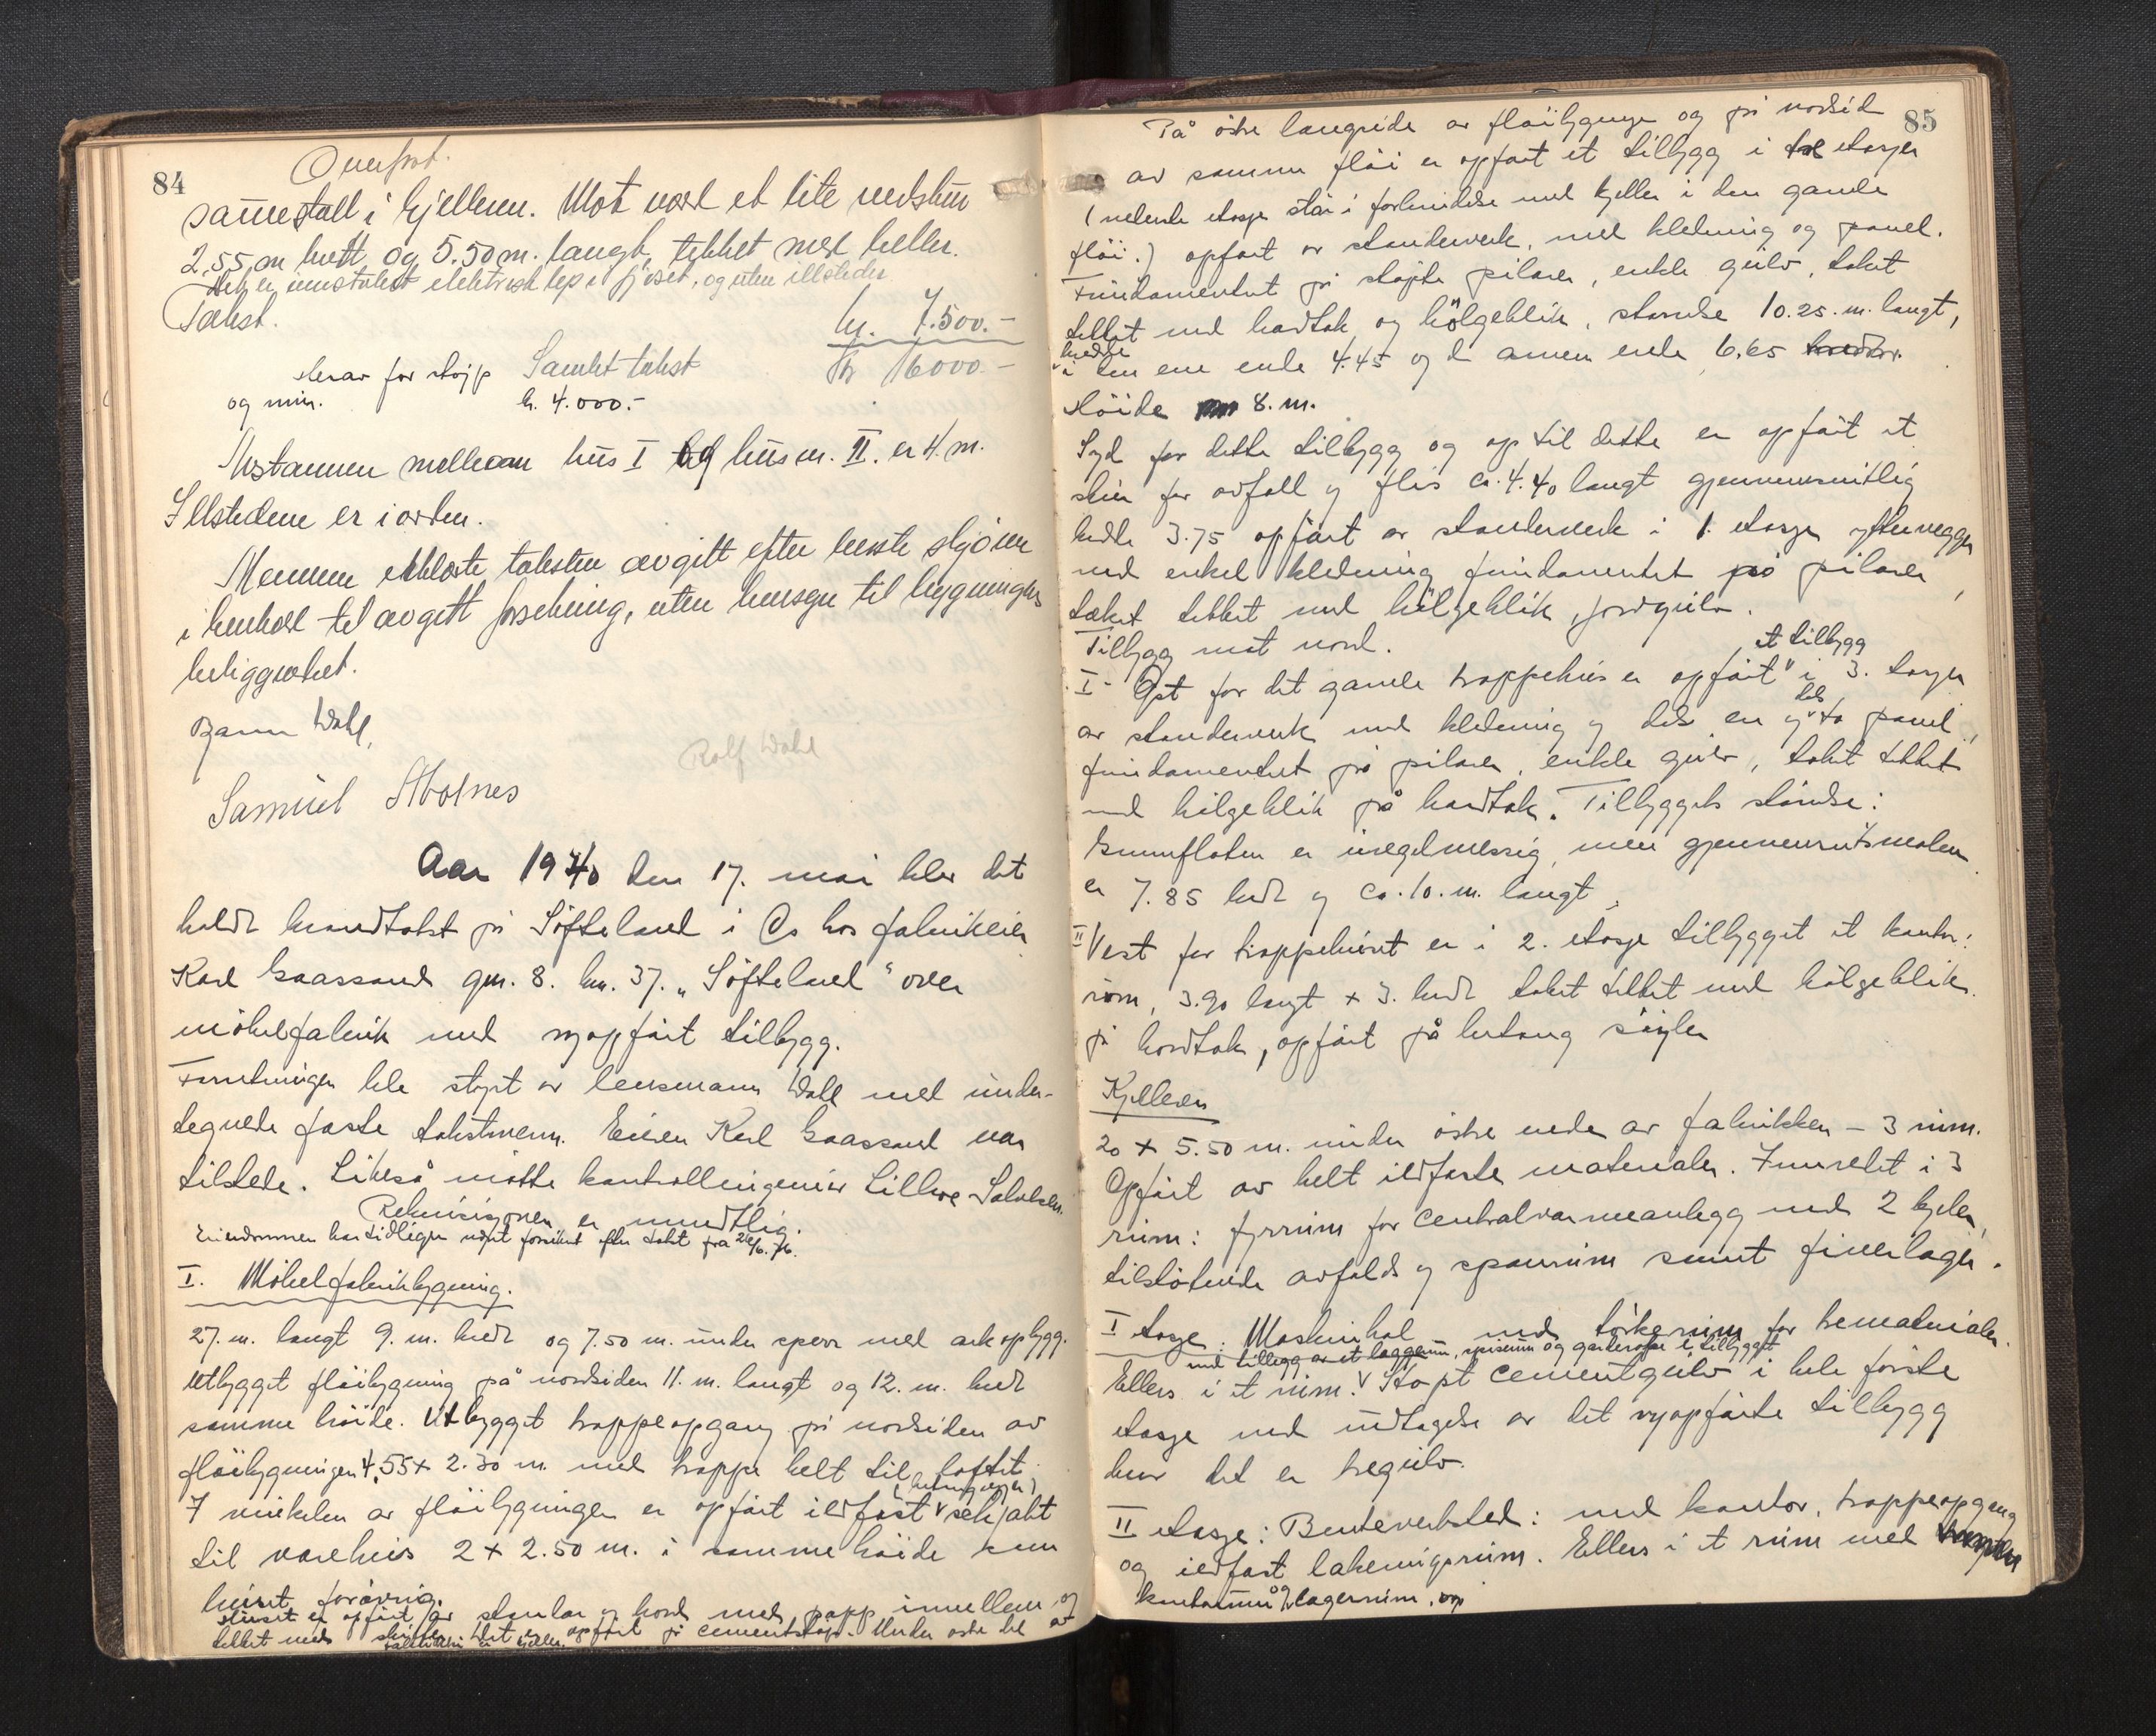 84
Overført.
sauestall i kjelleren. Mot nord et lite vedskur
2,55 m bratt og 5.50 m. langt, tekket med heller.
Det er innstalert elektrisk lys i fjøset, og uten illsteder
Takst. kr. 7.500.-
Samlet takst kr 16000.-
herav for støyp
og mur. kr. 4.000.-
Avstannen mellom hus I og hus nr. II. er 4 m.
Illstedene er i orden.
Mennene erklærte taksten avgitt efter beste skjønn
i henhold til avgitt forsikring, uten hensyn til bygningens
beliggenhet.
Bjarne Wahl,
Rolf Wahl
Samuel Moldnes
Aar 1940 den 17. mai blev det
holdt brandtakst på Søfteland i Os hos fabrikeier
Karl Gaassand gnr. 8. bnr. 37. „Søfteland" over
møbelfabrik med nyopført tilbygg.
Forretningen ble styrt av lensmann Wahl med under-
tegnede faste takstmenn. Eieren Karl Gaassand var
tilstede. Likeså møtte kontrollingeniør Lillare Salvesen.
Rekvisisjonen er mundtlig.
Eiendommen har tidligere været forsikret efter takst fra 26/6. 36.
I. Møbelfabrikbygning.
27. m. langt 9. m. bredt og 7.50 m. under sperr med ark opbygg.
Utbygget fløibygning på nordsiden 11. m. langt og 12. m. bredt
samme høide. Utbygget trappeopgang på nordsiden av
fløibygningen 4,55 x 2.30 m. med trappe helt til loftet.
I vinkelen av fløibygningen er opført ildfast (betongvegger) sjakt
til vareheis 2 x 2.50 m. i samme høide som
huset forøvrig.
Huset er opført av stenlar og bord med papp imellem og
tekket med skifer. Det er opført på cementstøp. Under østre del av
fabrikken er kjeller.
85
På østre langside av fløibygningen og på nordsid
av samme fløi er opført et tilbygg i tre etasjer
(nederste etasje står i forbindelse med kjeller i den gamle
fløi.) opført av standerverk, med kledning og panel.
Fundamentert på støpte pilarer, enkle gulv, taket
tekket med bordtak og bølgeblikk, størrelse 10.25. m. langt,
bredde
i den ene ende 4.45 og d annen ende 6,65
Høide 8. m.
Syd for dette tilbygg og op til dette er opført et
skur for avfall og flis ca. 4.40 langt gjennemsnitlig
bredde 3.75 opført av standerverk i 1. etasje yttervegger
med enkel kledning fundamentert på pilarer,
taket tekket med bølgeblikk, jordgulv.
Tilbygg mot nord.
I - Øst for det gamle trappehus er opført et tilbygg i 3. etasjer
av standerverk med kledning og dels en og dels to panel,
fundamentert på pilarer, enkle gulv, taket tekket
med bølgeblikk på bordtak. Tilbyggets størrelse:
Grunnflaten er uregelmessig, men gjennemsnitsmålene
er 7.85 bredt og ca. 10. m. langt,
II Vest for trappehuset er i 2. etasje tilbygget et kontor:
rom, 3.90 langt x 3. bredt taket tekket med bølgeblikk
på bordtak, opført på betong søiler
Kjelleren
20 x 5.50 m. under østre ende av fabrikken - 3 rum.
Opført av helt ildfaste materialer. Innredet i 3
rum: fyrrum for centralvarmeanlegg med 2 kjeler,
tilstøtende avfalds og sponrum samt finerlager.
I etasje: Maskinhal med tørkerum for trematerialer.
med tillegg av et laggerum, spiserum og garderobe i tilbygget
Ellers i et rum. Støpt cementgulv i hele første
etasje med undtagelse av det nyopførte tilbygg
hvor det er tregulv.
II etasje: Benkeverksted: med kontor, trappeopgang
og ildfast lakeringsrum. Ellers i et rum med
kontorrum og lagerrum, og